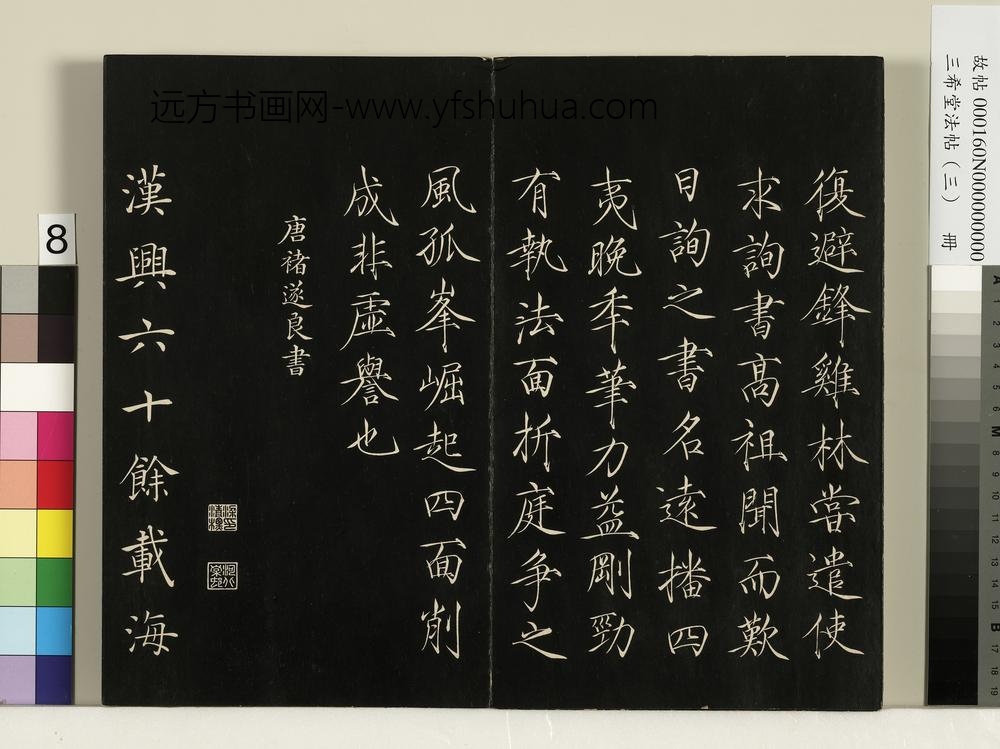 远方书画网-www.yfshuhua.com
故帖 000160N000000000
三希堂法帖(三) 冊
復避鋒雞林嘗遣使
求詢書高祖聞而歎
日詢之書名遠播四
夷晚年筆力益剛勁
有執法面折庭争之
風孤峯崛起四面削
成非虛譽也
唐褚遂良書
漢興六十餘載海
8